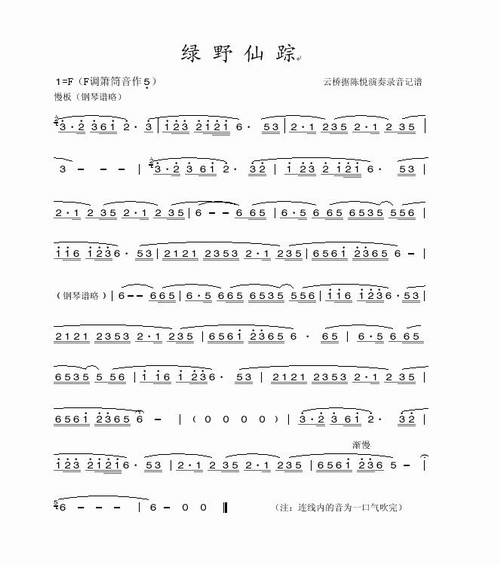 绿野仙踪
1=F（F调箫筒音作5）
云桥据陈悦演奏录音记谱
慢板（钢琴谱略）
3·2 361 2·3 | 123 2121 6·53 | 2·1 235 2·1 235 |
3 - - - | 3·2 361 2·32 | 123 2121 6·535 |
2·1 235 2·1 235 | 6 - - 665 | 6·5 66535 556 |
116 1236·53 | 2121 2353 2·1 235 | 6561 2365 6 - |
（钢琴谱略） | 6 - - 665 | 6·5 66535 556 | 116 1236·53 |
2121 2353 2·1 235 | 6561 2365 6·65 | 6·5 6
6535 556 | 116 1236·53 | 2121 2353 2·1 235 |
6561 2365 6 - | (0 0 0 0) | 3·2 361 2·32 |
渐慢
123 2121 6·53 | 2·1 235 2·1 235 | 6561 236 5 - |
6 - - - | 6 - 0 0 ‖
（注：连线内的音为一口气吹完）